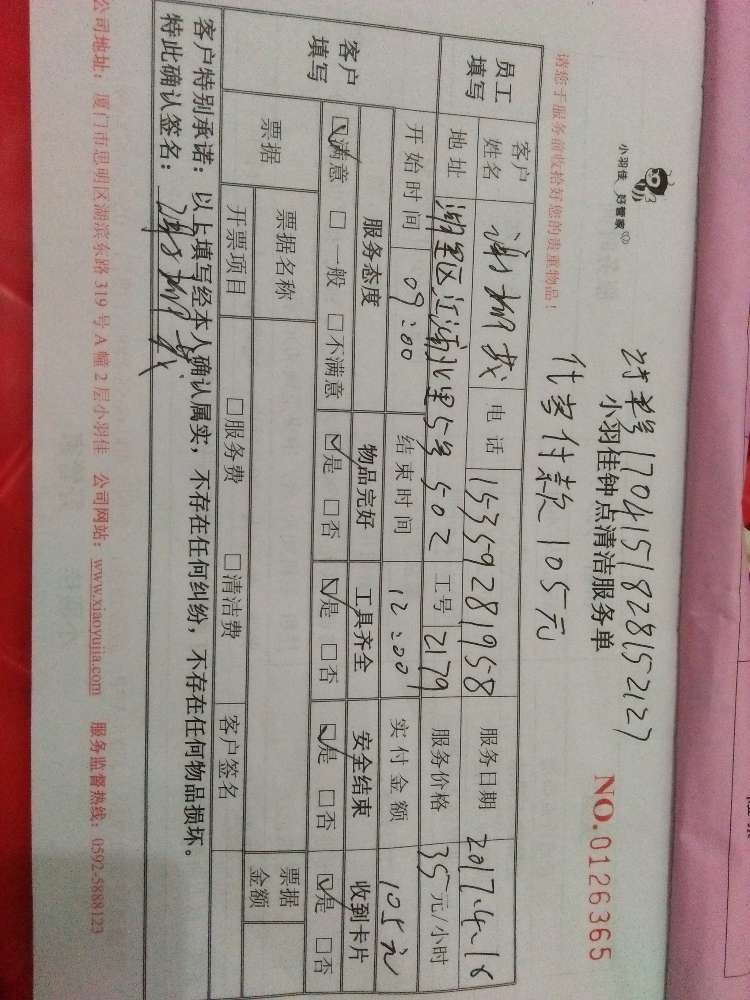 小羽佳 好管家
订单号1704151828152127
小羽佳钟点清洁服务单
NO.0126365
代客付款105元
请您于服务前收拾好您的贵重物品！
员工填写
客户姓名 电话 15359281958 服务日期 2017.4.18
地址 湖里区江浦北里5号502 工号 2179 服务价格 35元/小时
开始时间 09:00 结束时间 12:00 实付金额 105元
客户填写
服务态度 物品完好 工具齐全 安全结束 收到卡片
☑满意 □一般 □不满意 ☑是 □否 ☑是 □否 ☑是 □否 ☑是 □否
票据 票据名称 票据金额
开票项目 □服务费 □清洁费 客户签名
客户特别承诺：以上填写经本人确认属实，不存在任何纠纷，不存在任何物品损坏。
特此确认签名：
公司地址：厦门市思明区湖滨东路319号A幢2层小羽佳 公司网站：www.xiaoyujia.com 服务监督热线：0592-5888123